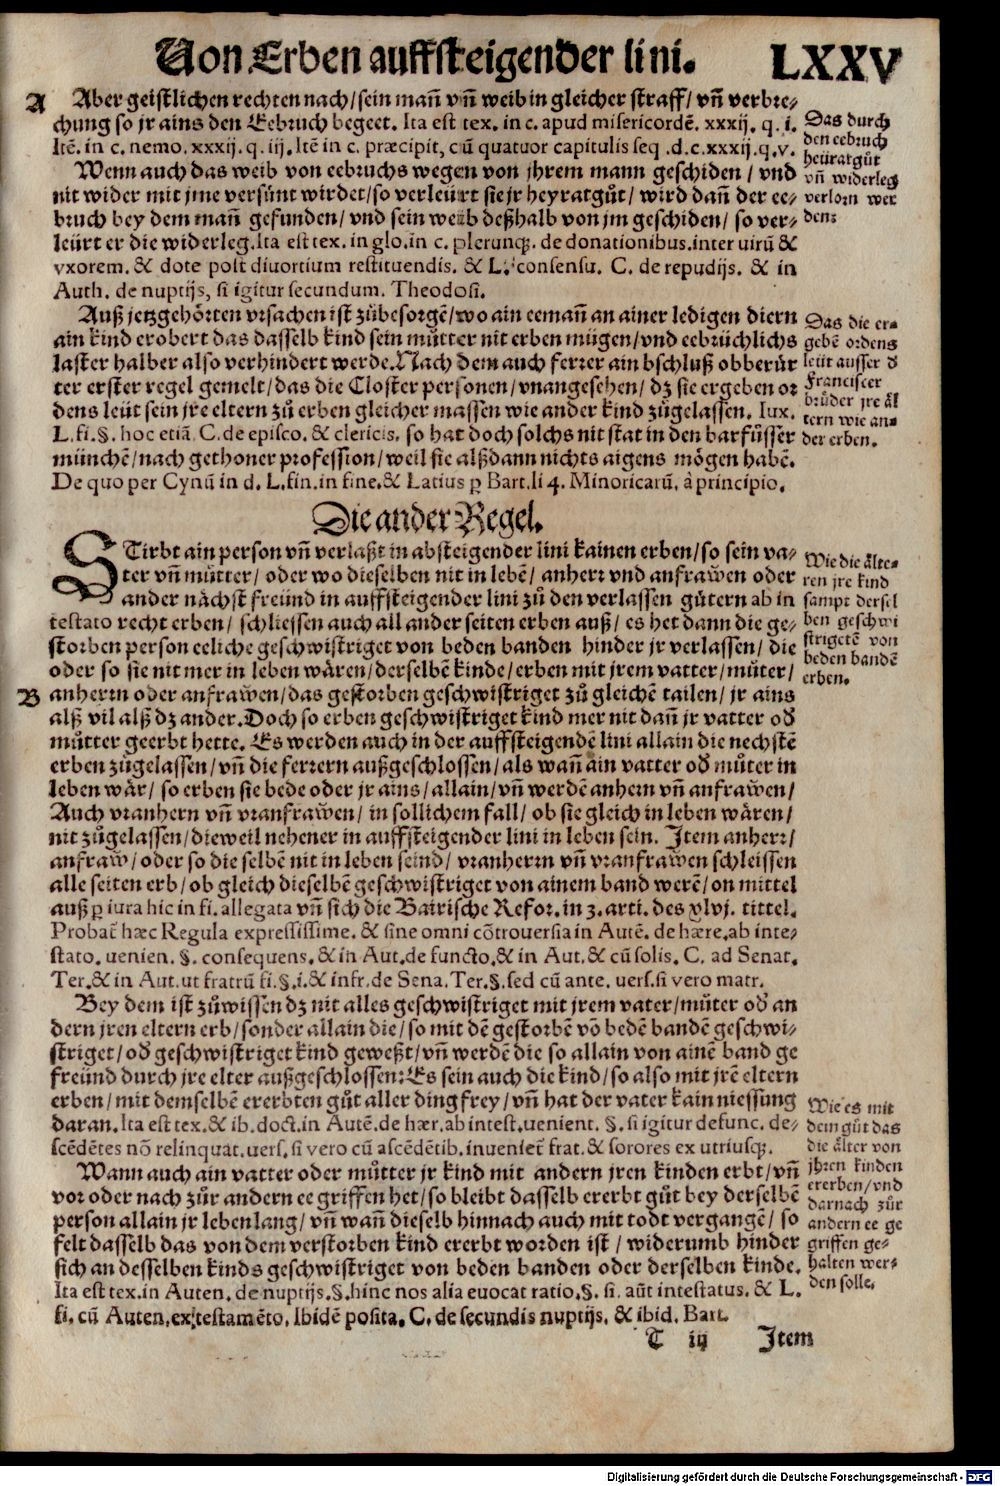 Von Erben auffsteigender lini. LXXV
A
Aber geistlichen rechten nach/sein mañ vñ weib in gleicher straff/ vñ verbre-
chung so jr ains den Eebruch begeet. Ita est tex. in c. apud misericordẽ. xxxij. q. i.
Itẽ. in c. nemo. xxxij. q. iij. Itẽ in c. præcipit, cũ quatuor capitulis seq .d.c.xxxij.q.v.
Das durch
den eebruch
heüratgůt
vñ widerleg
verlorn wer
den:
Wenn auch das weib von eebruchs wegen von jhrem mann geschiden / vnd
nit wider mit jme versünt wirdet/so verleürt sie jr heyratgůt/ wird dañ der ee-
bruch bey dem mañ gefunden/ vnd sein weib deßhalb von jm geschiden/ so ver-
leürt er die widerleg.Ita est tex. in glo.in c. plerunq;. de donationibus.inter uirũ &
vxorem. & dote post diuortium restituendis. & L. consensu. C. de repudijs. & in
Auth. de nuptijs, si igitur secundum. Theodosi.
Auß jetzgehörten vrsachen ist zůbesorgẽ/wo ain eemañ an ainer ledigen diern
ain kind erobert das dasselb kind sein můtter nit erben mügen/vnd eebrüchlichs
laster halber also verhindert werde.Nach dem auch ferrer ain bschluß obberür
ter erster regel gemelt/das die Closter personen/vnangesehen/ dz sie ergeben or
dens leüt sein jre eltern zů erben gleicher massen wie ander kind zůgelassen. Iux.
L.fi.§. hoc etiã. C.de episco. & clericis. so hat doch solchs nit stat in den barfůsser
münchẽ/nach gethoner profession/weil sie alßdann nichts aigens mögen habẽ.
De quo per Cynũ in d. L.fin.in fine.& Latius p Bart.li 4. Minoricarũ. ã principio.
Das die er-
gebẽ ordens
leüt ausser d
Franciscer
brüder jre äl
tern wie an-
der erben.
Die ander Regel.
STirbt ain person vñ verlaßt in absteigender lini kainen erben/so sein va-
ter vñ můtter/ oder wo dieselben nit in lebẽ/ anherr vnd anfrawen oder
ander nächst freünd in auffsteigender lini zů den verlassen gütern ab in
testato recht erben/ schliessen auch all ander seiten erben auß/ es het dann die ge-
storben person eeliche geschwistriget von beden banden hinder jr verlassen/ die
oder so sie nit mer in leben wären/derselbẽ kinde/erben mit jrem vatter/můter/
Wie die älte-
ren jre kind
sampt dersel
ben geschwi
strigetẽ von
beden bandẽ
erben.
B
anherrn oder anfrawen/das gestorben geschwistriget zů gleichẽ tailen/ jr ains
alß vil alß dz ander.Doch so erben geschwistriget kind mer nit dañ jr vatter od
můtter geerbt hette. Es werden auch in der auffsteigendẽ lini allain die nechstẽ
erben zůgelassen/vñ die ferrern außgeschlossen/als wañ ain vatter od můter in
leben wär/ so erben sie bede oder jr ains/allain/vñ werdẽ anhern vñ anfrawen/
Auch vranhern vñ vranfrawen/ in sollichem fall/ ob sie gleich in leben wären/
nit zůgelassen/dieweil nehener in auffsteigender lini in leben sein. Item anherr/
anfraw/oder so die selbẽ nit in leben seind/ vranherrn vñ vranfrawen schleissen
alle seiten erb/ob gleich dieselbẽ geschwistriget von ainem band werẽ/on mittel
auß p iura hic in fi. allegata vñ sich die Bairische Refor. in 3. arti. des xlvj. tittel.
Probat̃ hæc Regula expressissime. & sine omni cõtrouersia in Autẽ. de hære.ab inte-
stato. uenien. §. consequens.& in Aut.de functo.& in Aut.& cũ solis. C. ad Senat.
Ter.& in Aut.ut fratrũ fi.§.i.& infr.de Sena. Ter.§.sed cũ ante. uers.si vero matr.
Bey dem ist zůwissen dz nit alles geschwistriget mit jrem vater/můter od an
dern jren eltern erb/sonder allain die/so mit dẽ gestorbẽ võ bedẽ bandẽ geschwi-
striget/od geschwistriget kind geweßt/vñ werdẽ die so allain von ainẽ band ge
freünd durch jre elter außgeschlossen:Es sein auch die kind/so also mit jrẽ eltern
erben/mit demselbẽ ererbten gůt aller ding frey/vñ hat der vater kain niessung
daran.Ita est tex.& ib.doct.in Autẽ.de hær.ab intest.uenient. §.si igitur defunc. de-
scẽdẽtes nõ relinquat.uers.si vero cũ ascẽdẽtib.inueniet̃ frat.& sorores ex utriusq;.
Wann auch ain vatter oder můtter jr kind mit andern jren kinden erbt/vñ
vor oder nach zůr andern ee griffen het/so bleibt dasselb ererbt gůt bey derselbẽ
person allain jr lebenlang/vñ wañ dieselb hinnach auch mit todt vergangẽ/ so
felt dasselb das von dem verstorben kind ererbt worden ist / widerumb hinder
sich an desselben kinds geschwistriget von beden banden oder derselben kinde.
Ita est tex.in Auten. de nuptijs.§.hinc nos alia euocat ratio.§. si. aũt intestatus. & L.
fi. cũ Auten.ex testamẽto. Ibidẽ posita. C. de secundis nuptijs. & ibid. Bart.
Wie es mit
dem gůt das
die älter von
jhren kinden
ererben/vnd
darnach zůr
andern ee ge
griffen ge-
halten wer-
den solle.
T iij Item
Digitalisierung gefördert durch die Deutsche Forschungsgemeinschaft - DFG